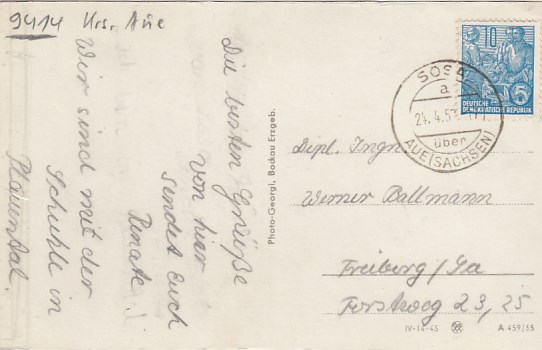 9414 Krs. Aue
Die besten Grüße
von hier
sendet euch
Renate!
Wir sind mit der
Schuhle in
Blauental.
Photo-Georgi, Bockau Erzgeb.
10
DEUTSCHE
DEMOKRATISCHE REPUBLIK
5
SOSA
a
24.4.57
über
AUE (SACHSEN)
Dipl. Ingn
Werner Ballmann
Freiberg/Sa
Forstweg 23, 25
IV-14-45 A 459/55